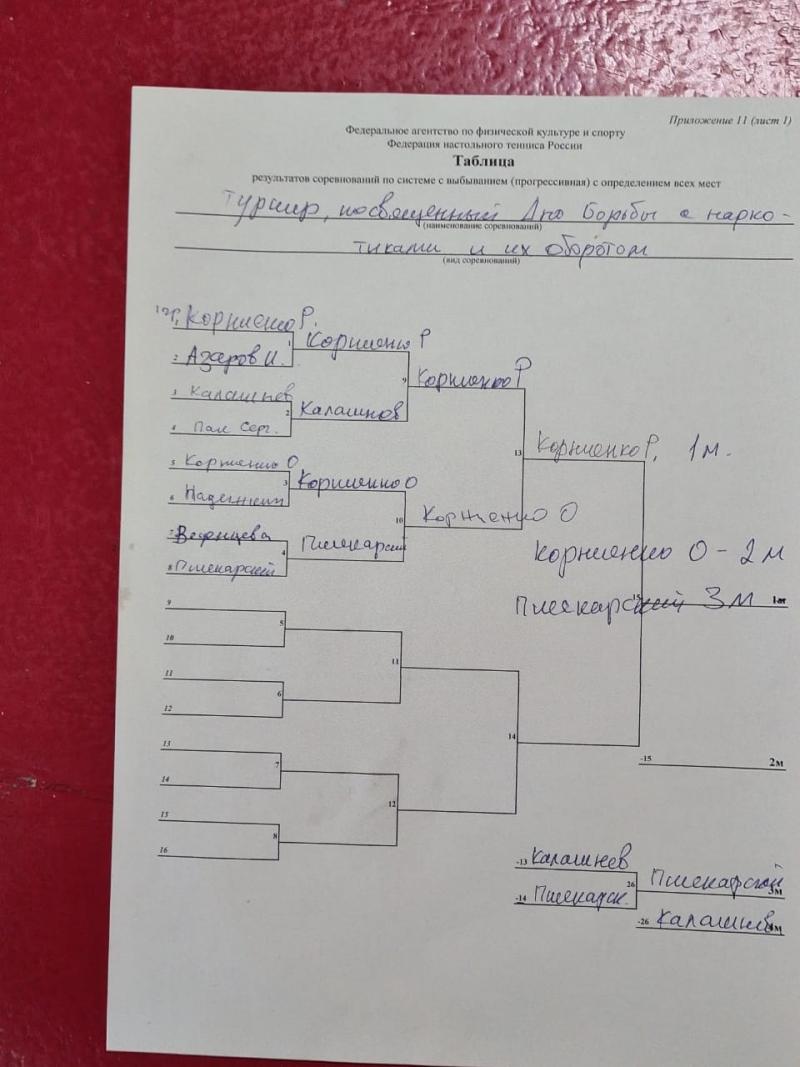 Приложение 11 (лист 1)
Федеральное агентство по физической культуре и спорту
Федерация настольного тенниса России
Таблица
результатов соревнований по системе с выбыванием (прогрессивная) с определением всех мест
Турнир, посвященный Дню Борьбы с нарко-
(наименование соревнований)
тиками и их оборотом
(вид соревнований)
Корниенко Р.
1
Корниенко Р
2 Азаров И.
9
Корниенко Р
3 Калашнев
2
Калашнов
4 Пак Серг.
13
Корниенко Р, 1 м.
5 Корниенко О
3
Корниенко О
6
10
Корниенко О
7
4
Пшекарский
8 Пшекарский
Корниенко О - 2 м
Пшекарский 3 м
15
1м
9
5
10
11
11
6
12
14
13
7
14
12
15
8
16
-15
2м
-13 Калашнев
26
Пшекарский
3м
-14 Пшекарск.
-26 Калашнев
4м